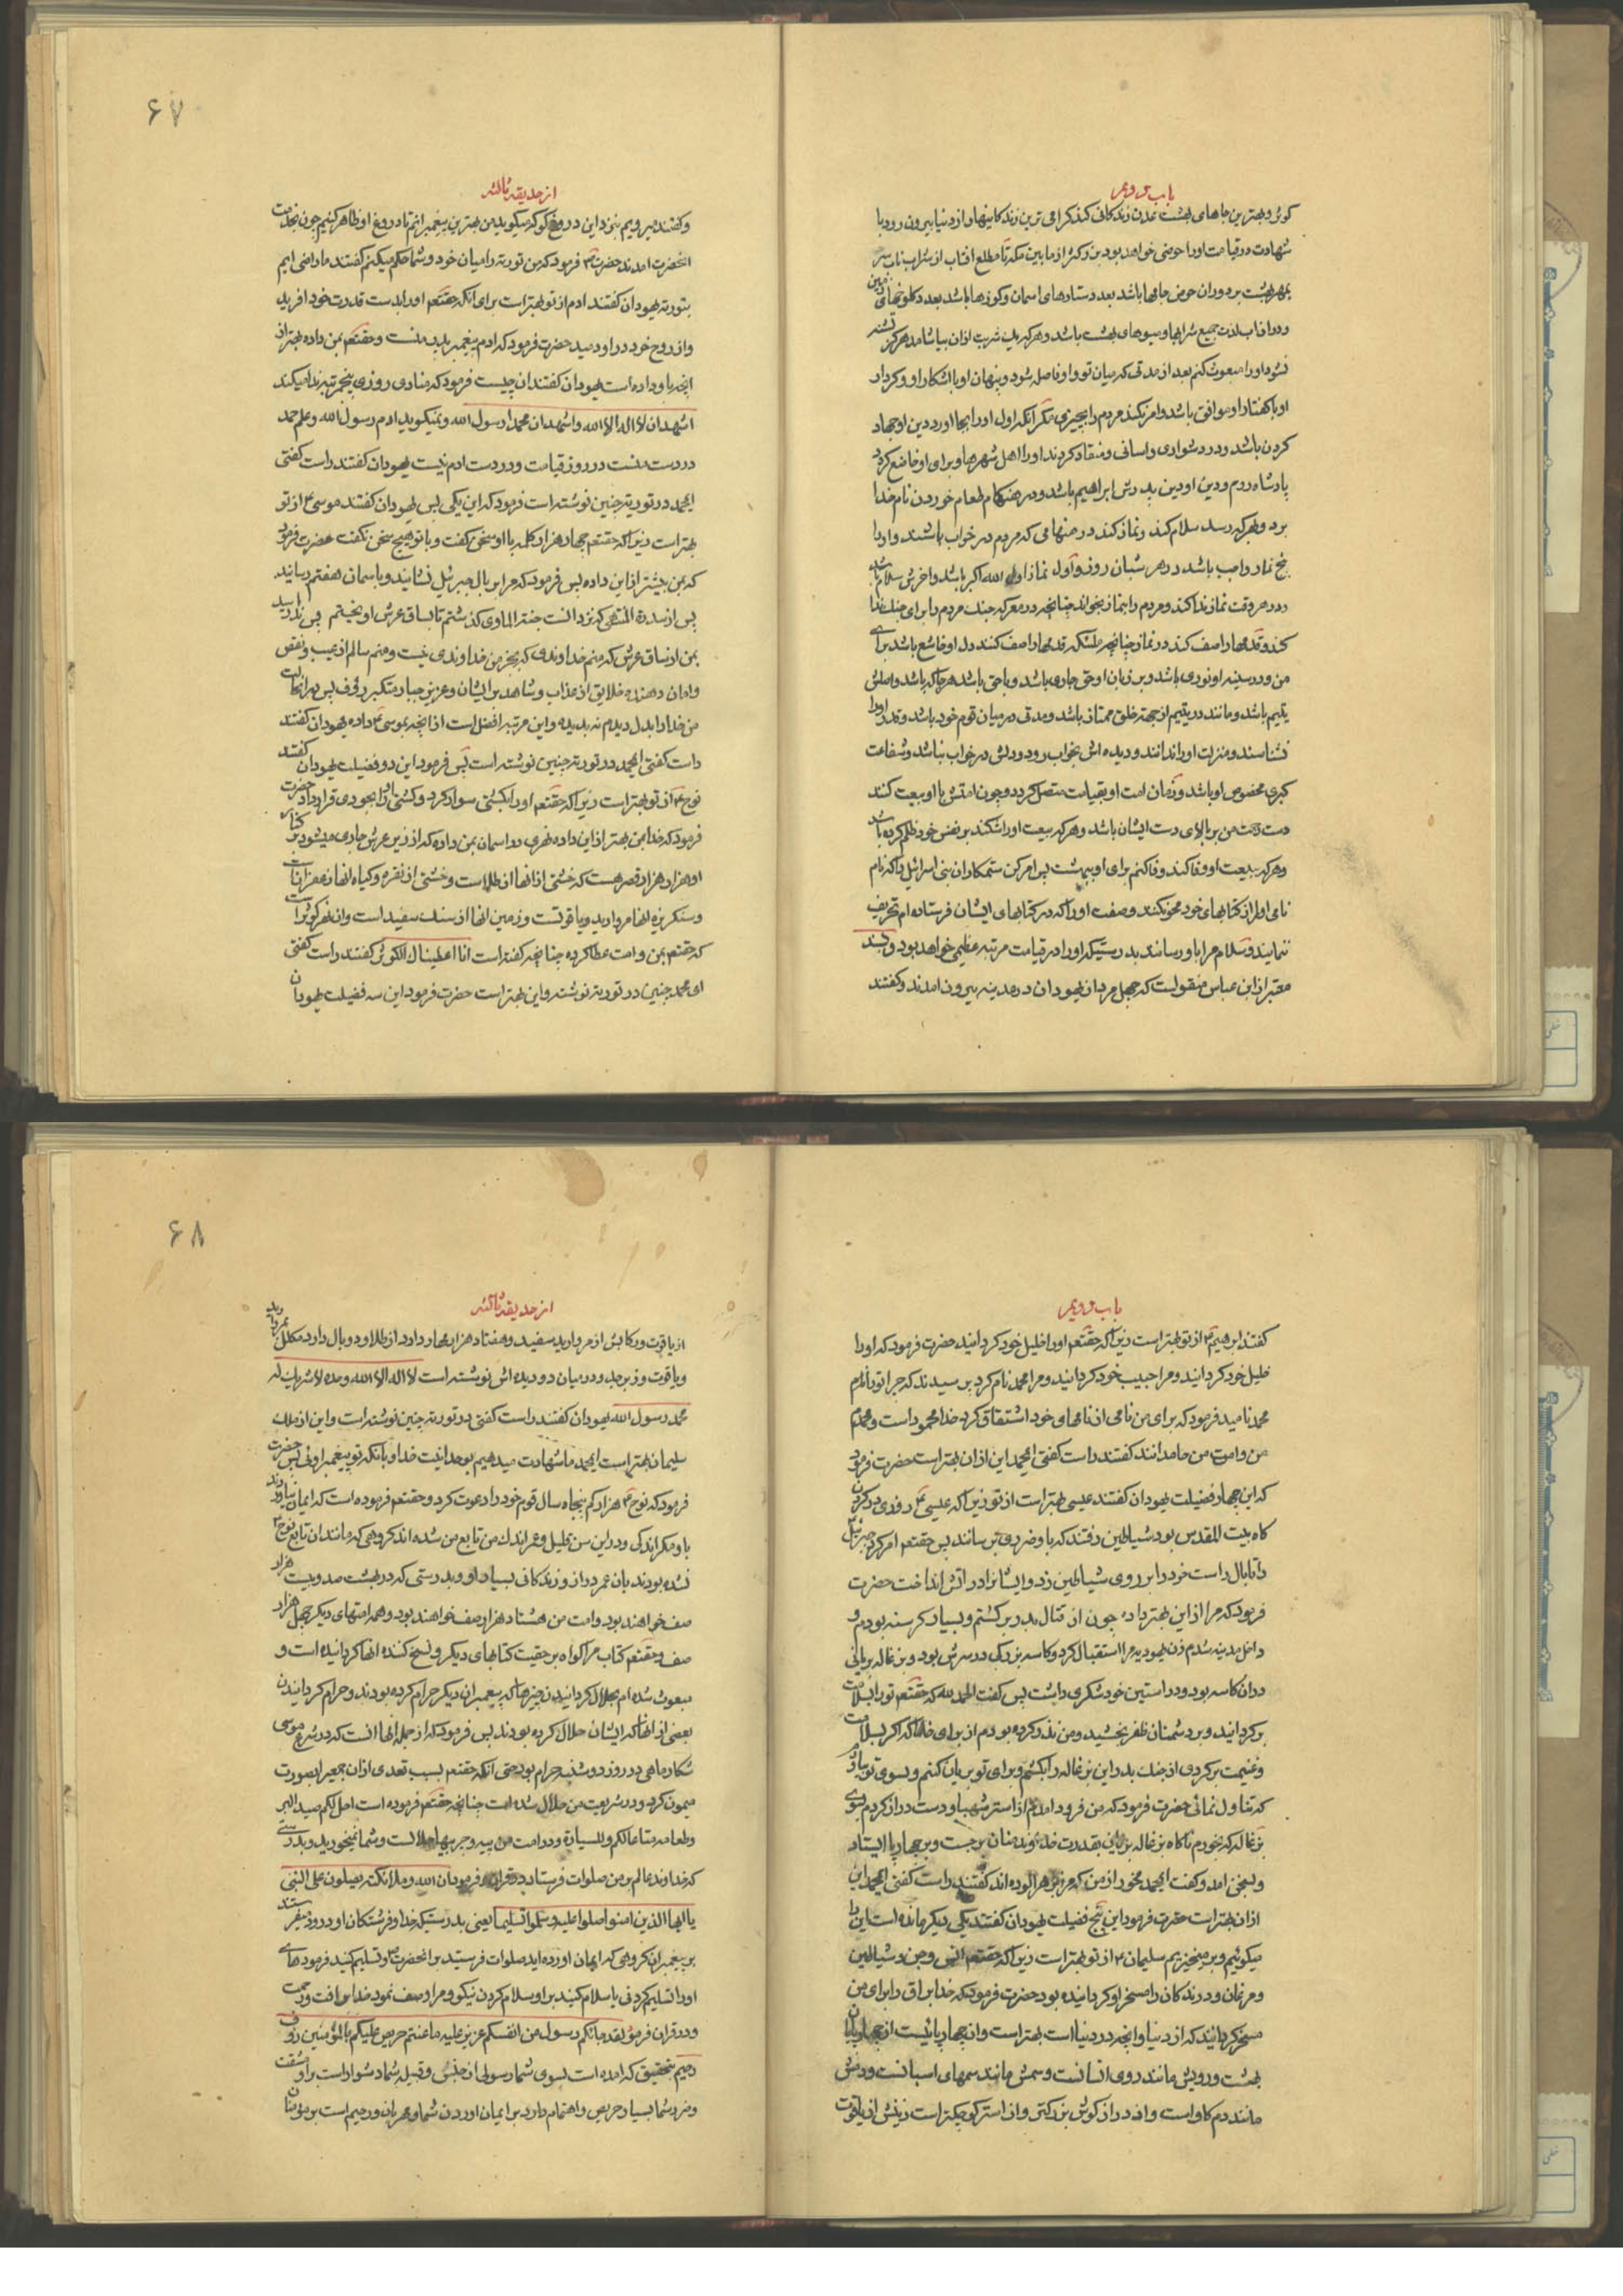 باب دویم
کوئر و بهترین جاهای بهشت عدن زندکانی کند کرامی ترین زندکانیها و از دنیا بیرون رود با
شهادت در قیامت او را حوضی خواهد بود بزرکتر از مابین مکه تا مطلع افتاب از شراب ناب سر
بمهر بهشت بر دوران حوض جامها باشد بعدد ستارهای اسمان و کوزها باشد بعدد کلوخهای زمین
و دران اب لذت جمیع شرابها و میوهای بهشت باشد و هر که یک شربت ازان بیاشامد هرکز تشنه
نشود او را مبعوث کنم بعد از مدتی که میان تو و او فاصله شود و پنهان او با اشکار او و کردار
او با کفتار او موافق باشد و امر نکند مردم را بچیزی مکر انکه اول او را بجا اورد دین او جهاد
کردن باشد و در دشواری و اسانی و منقاد کردند او را اهل شهرها و برای او خاضع کردد
پادشاه روم و دین او دین پدرش ابراهیم باشد و در هنکام طعام خوردن نام خدا
برد و بهر که رسد سلام کند و نماز کند در هنکامی که مردم در خواب باشند و او را
پنج نماز واجب باشد در هر شبان روز و اول نماز او الله اکبر باشد و اخرش سلام باشد
و در هر وقت نماز ندا کند و مردم را بنماز بخواند چنانچه در معرکه جنک مردم را برای جنک ندا
کند و قدمها را صف کند در نماز چنانچه ملئکه قدمها را صف کنند دل او خاشع باشد برای
من و در سینه او نوری باشد و بر زبان او حق جاری باشد و با حق باشد هر جا که باشد و اصلش
یتیم باشد و مانند در یتیم از جهة خلق ممتاز باشد و مدتی در میان قوم خود باشد و قدر او را
نشناسند و منزلت او را ندانند و دیده اش بخواب رود و دلش در خواب نباشد و شفاعت
کبری مخصوص او باشد و زمان امت او بقیامت متصل کردد و چون امتش با او بیعت کنند
دست رحمت من بر بالای دست ایشان باشد و هر که بیعت او را شکند بر نفس خود ظلم کرده باشد
و هر که بیعت او وفا کند وفا کنم برای او ببهشت پس امر کن ستمکاران بنی اسرائیل را که نام
نامی او را از کتابهای خود محو نکنند و صفت او را که در کتابهای ایشان فرستاده ام تحریف
ننمایند و سلام مرا باو رسانند بدرستیکه او را در قیامت مرتبه عظیمی خواهد بود و بسند
معتبر از ابن عباس منقولست که چهل مرد از یهودان در مدینه بیرون امدند و کفتند
۶۷
از حدیقه ثالثه
و کفتند میرویم بنزد این دروغ کو که میکوید من بهترین پیغمبرانم تا دروغ او ظاهر کنیم چون بخدمت
انحضرت امدند حضرت فرمود که من توریة را میان خود و شما حکم میکنم کفتند ما راضی ایم
بتوریة یهودان کفتند ادم از تو بهتر است برای انکه حقتعم او را بدست قدرت خود افرید
و از روح خود در او دمید حضرت فرمود که ادم پیغمبر پدر منست و حقتعم بمن داده بهتر از
انچه باو داده است یهودان کفتند ان چیست فرمود که منادی روزی پنج مرتبه ندا میکند
اشهد ان لا اله الا الله و اشهد ان محمدا رسول الله و نمیکوید ادم رسول الله و علم حمد
در دست منست در روز قیامت و در دست ادم نیست یهودان کفتند راست کفتی
ایمحمد در توریة چنین نوشته است فرمود که این یکی پس یهودان کفتند موسی ع از تو
بهتر است زیرا که حقتعم چهار هزار کلمه با او سخن کفت و با تو هیچ سخن نکفت حضرت فرمود
که بمن بیشتر از این داده پس فرمود که مرا بر بال جبرئیل نشانید و باسمان هفتم رسانید
پس از سدرة المنتهی که نزد انست جنة الماوی کذشتم تا بساق عرش اویختم پس ندا رسید
بمن از ساق عرش که منم خداوندی که بجز من خداوندی نیست و منم سالم از عیب و نقص
و امان دهنده خلایق از عذاب و شاهد بر ایشان و عزیز جبار متکبر رؤف پس در انحالت
من خدا را بدل دیدم نه بدیده و این مرتبه افضل است از انچه بموسی ع داده یهودان کفتند
راست کفتی ایمحمد در توریة چنین نوشته است پس فرمود این دو فضیلت یهودان کفتند
نوح ع از تو بهتر است زیرا که حقتعم او را بکشتی سوار کرد و کشتی او را بجودی قرار داد حضرت
فرمود که خدا بمن بهتر از این داده نهری در اسمان بمن داده که از زیر عرش جاری میشود بر کنار
او هزار هزار قصر هست که خشتی از انها از طلا است و خشتی از نقره و کیاه انها زعفرانست
و سنکریزه انها مروارید و یاقوتست و زمین انها از مشک سفید است و ان نهر کوثر است
که حقتعم بمن و امت عطا کرده چنانچه کفته است انا اعطیناك الکوثر کفتند راست کفتی
ای محمد چنین در توریة نوشته و این بهتر است حضرت فرمود این سه فضیلت یهودان
باب دویم
کفتند ابرهیم ع از تو بهتر است زیرا که حقتعم او را خلیل خود کردانید حضرت فرمود که او را
خلیل خود کردانید و مرا حبیب خود کردانید و مرا محمد نام کرد پرسیدند که چرا تو را نام
محمد نامید فرمود که برای من نامی از نامهای خود اشتقاق کرد خدا محمود است و محمدم
من و امت من حامدانند کفتند راست کفتی ایمحمد این ازان بهتر است حضرت فرمود
که این چهار فضیلت یهودان کفتند عیسی بهتر است از تو زیرا که عیسی ع روزی در کردن
کاه بیت المقدس بود شیاطین رفتند که باو ضرری برسانند پس حقتعم امر کرد جبرئیل
را تا بال راست خود را بر روی شیاطین زد و ایشانرا در اتش انداخت حضرت
فرمود که مرا از این بهتر داده چون از قتال بدر برکشتم و بسیار کرسنه بودم و
داخل مدینه شدم زن یهودیه مرا استقبال کرد و کاسه بزرکی در سرش بود و بزغاله بریانی
دران کاسه بود و در استین خود شکری داشت پس کفت الحمد لله که حقتعم تو را بسلامت
برکردانید و بر دشمنان ظفر بخشید و من نذر کرده بودم از برای خدا که اکر بسلامت
و غنیمت برکردی از جنک بدر این بزغاله را بکشم و برای تو بریان کنم و بسوی تو بیاورم
که تناول نمائی حضرت فرمود که من فرود امدم از استر شهبا و دست دراز کردم بسوی
بزغاله که بخورم ناکاه بزغاله بریان بقدرت خداوند منان برجست و بر چهار پا ایستاد
و بسخن امد و کفت ایمحمد مخور از من که مرا بزهر الوده اند کفتند راست کفتی ایمحمد این
ازان بهتر است حضرت فرمود این پنج فضیلت یهودان کفتند یکی دیکر مانده است این را
میکوئیم و برمیخیزیم سلیمان ع از تو بهتر است زیرا که حقتعم انس و جن و شیاطین
و مرغان و درندکان را مسخر او کردانیده بود حضرت فرمود که خدا براق را برای من
مسخر کردانید که از دنیا و انچه در دنیا است بهتر است و ان چهارپائیست از چهارپایان
بهشت و رویش مانند روی انسانست و سمش مانند سمهای اسبانست و دمش
مانند دم کاو است و از دراز کوش بزرکتر و از استر کوچکتر است زینش از یاقوت
۶۸
از حدیقه ثالثه
از یاقوت و رکابش از مروارید سفید و هفتاد هزار مهار دارد از طلا و دو بال دارد مکلل بمروارید
و یاقوت و زبرجد و در میان دو دیده اش نوشته است لا اله الا الله وحده لا شریك له
محمد رسول الله یهودان کفتند راست کفتی در توریة چنین نوشته است و این از ملك
سلیمان بهتر است ایمحمد ما شهادت میدهیم بوحدانیت خدا و بانکه تو پیغمبر اوئی پس حضرت
فرمود که نوح ع هزار کم پنجاه سال قوم خود را دعوت کرد و حقتعم فرموده است که ایمان نیاوردند
باو مکر اندکی و در این سن قلیل و عمر اندك من تابع من شده اند کروهی که مانند ان تابع نوح ع
نشده بودند بان عمر دراز و زندکانی بسیار او و بدرستی که در بهشت صد و بیست هزار
صف خواهند بود و امت من هشتاد هزار صف خواهند بود و همه امتهای دیکر چهل هزار
صف و حقتعم کتاب مرا کواه بر حقیت کتابهای دیکر و نسخ کننده انها کردانیده است و
مبعوث شده ام بحلال کردانیدن چیزها که پیغمبران دیکر حرام کرده بودند و حرام کردانیدن
بعضی از انها که ایشان حلال کرده بودند پس فرمود که از جمله انها انست که در شرع موسی
شکار ماهی در روز دوشنبه حرام بود حتی انکه حقتعم بسبب تعدی ازان جمعی را بصورت
میمون کرد و در شریعت من حلال شده است چنانچه حقتعم فرموده است احل لکم صید البحر
و طعامه متاعا لکم و للسیارة و در امت من پیه و چربیها حلالست و شما نمیخورید و بدرستی
که خداوند عالم بر من صلوات فرستاد در قران و فرمود ان الله و ملائکته یصلون علی النبی
یا ایها الذین امنوا صلوا علیه و سلموا تسلیما یعنی بدرستیکه خدا و فرشتکان او درود میفرستند
بر پیغمبر ان کروهی که ایمان اورده اید صلوات فرستید بر انحضرت و تسلیم کنید فرمودهای
او را تسلیم کردنی یا سلام کنید بر او سلام کردن نیکو و مرا وصف نمود خدا برافت و رحمت
و در قران فرمود لقد جائکم رسول من انفسکم عزیز علیه ما عنتم حریص علیکم بالمؤمنین رؤف
رحیم بتحقیق که امده است بسوی شما رسولی از جنس و قبیله شما دشوار است بر او مشقت
و ضرر شما بسیار حریص و اهتمام دارد بر ایمان اوردن شما و مهربان و رحیم است بر مؤمنان